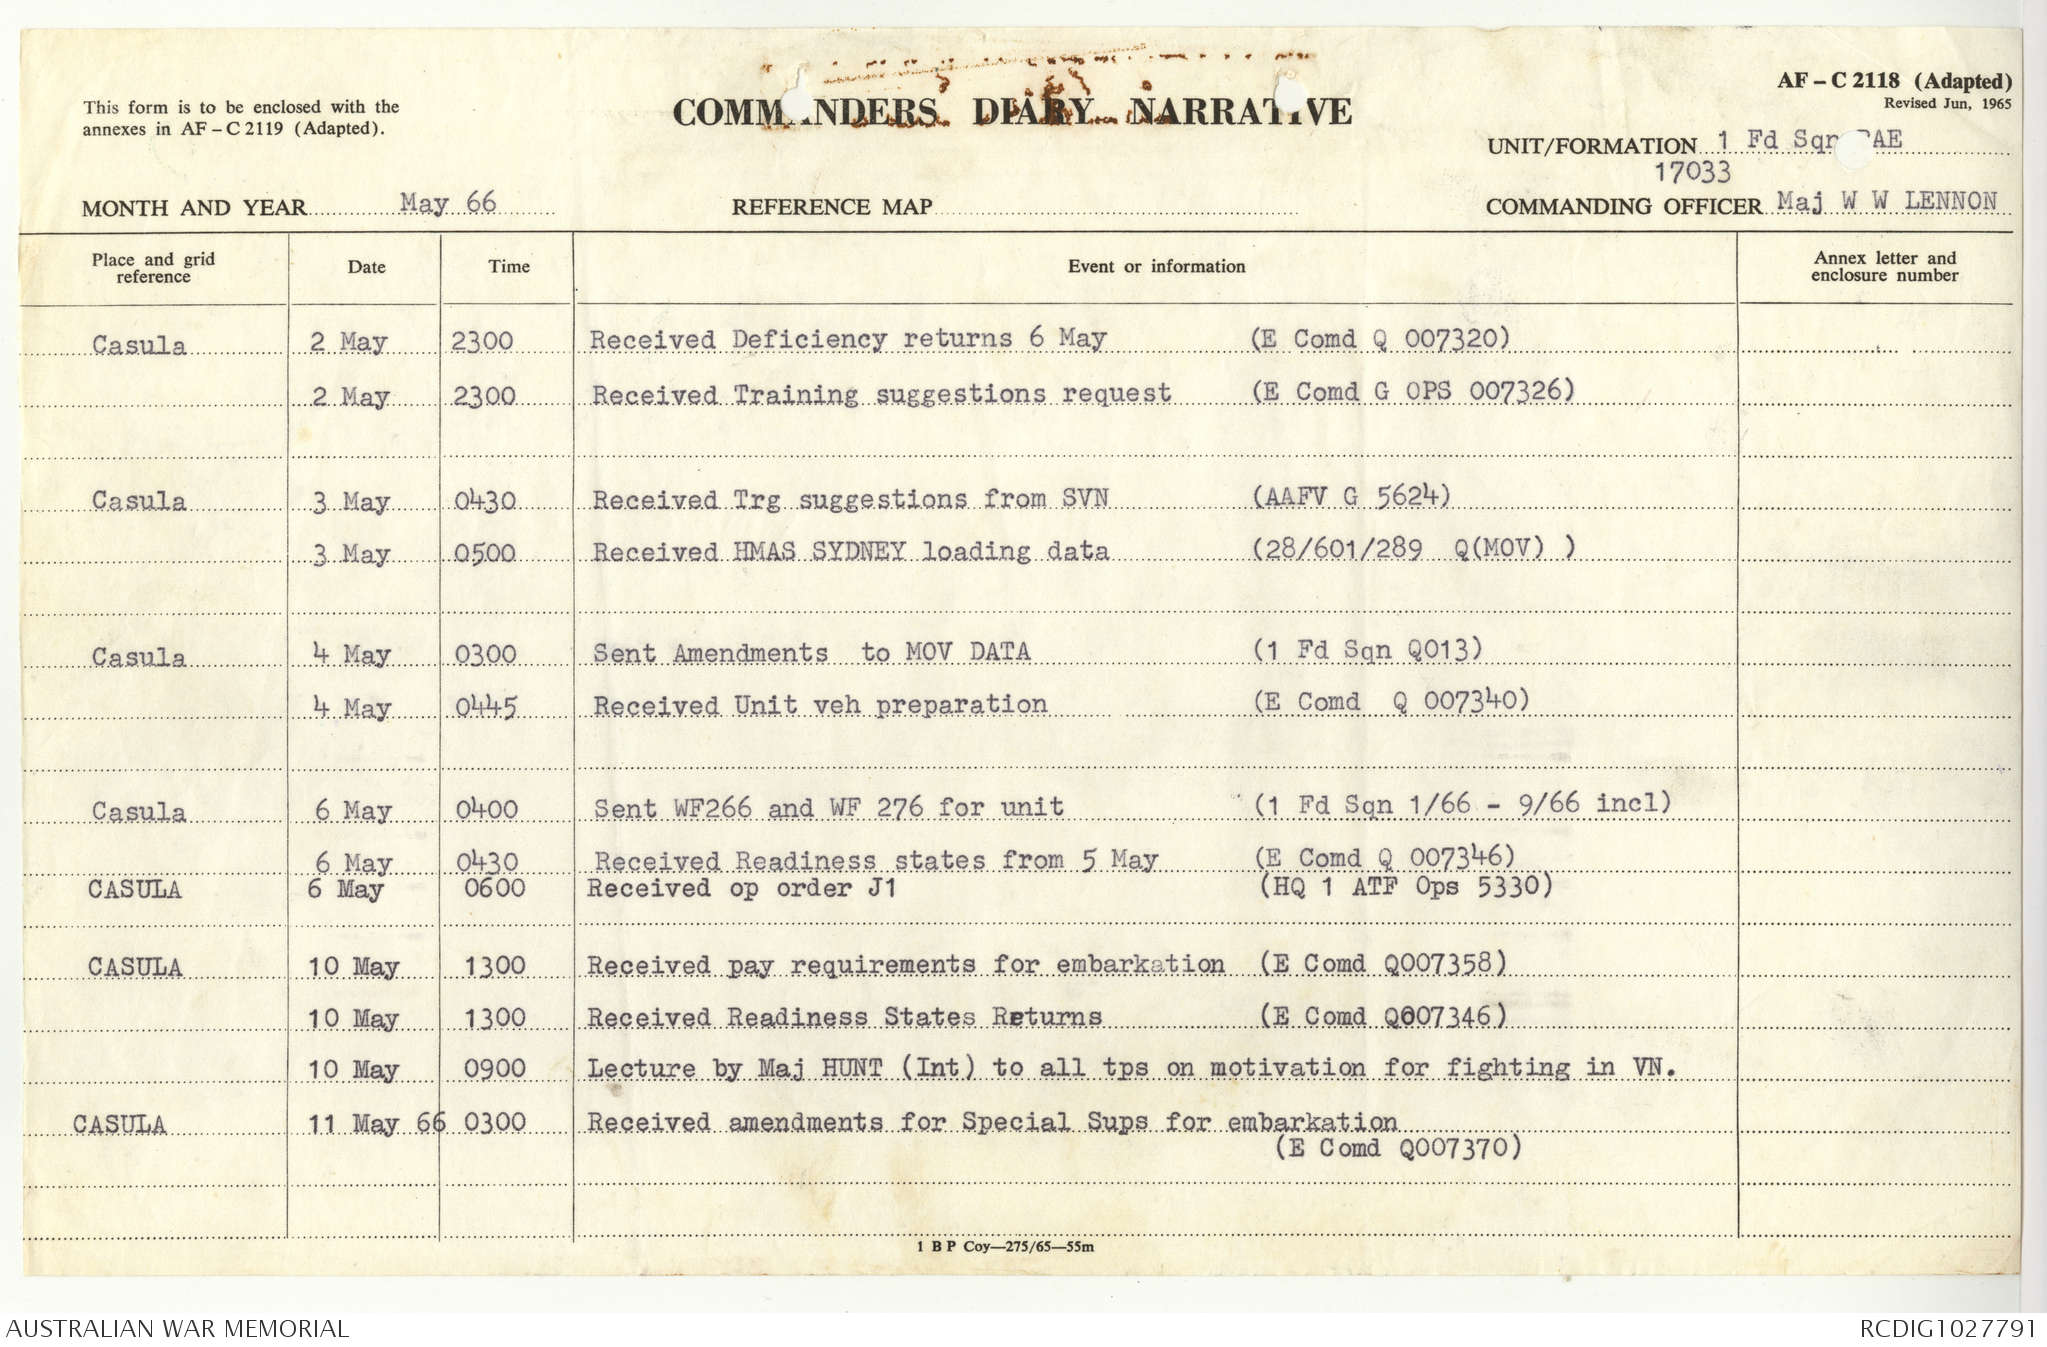 This form is to be enclosed with the
annexes in AF – C 2119 (Adapted).
COMMANDERS DIARY NARRATIVE
AF – C 2118 (Adapted)
Revised Jun, 1965
UNIT/FORMATION 1 Fd Sqn RAE
17033
MONTH AND YEAR May 66 REFERENCE MAP COMMANDING OFFICER Maj W W LENNON
Place and grid reference Date Time Event or information Annex letter and enclosure number
Casula 2 May 2300 Received Deficiency returns 6 May (E Comd Q 007320)
2 May 2300 Received Training suggestions request (E Comd G OPS 007326)
Casula 3 May 0430 Received Trg suggestions from SVN (AAFV G 5624)
3 May 0500 Received HMAS SYDNEY loading data (28/601/289 Q(MOV) )
Casula 4 May 0300 Sent Amendments to MOV DATA (1 Fd Sqn Q013)
4 May 0445 Received Unit veh preparation (E Comd Q 007340)
Casula 6 May 0400 Sent WF266 and WF 276 for unit (1 Fd Sqn 1/66 - 9/66 incl)
6 May 0430 Received Readiness states from 5 May (E Comd Q 007346)
CASULA 6 May 0600 Received op order J1 (HQ 1 ATF Ops 5330)
CASULA 10 May 1300 Received pay requirements for embarkation (E Comd Q007358)
10 May 1300 Received Readiness States Returns (E Comd Q007346)
10 May 0900 Lecture by Maj HUNT (Int) to all tps on motivation for fighting in VN.
CASULA 11 May 66 0300 Received amendments for Special Sups for embarkation
(E Comd Q007370)
1 B P Coy—275/65—55m
AUSTRALIAN WAR MEMORIAL RCDIG1027791